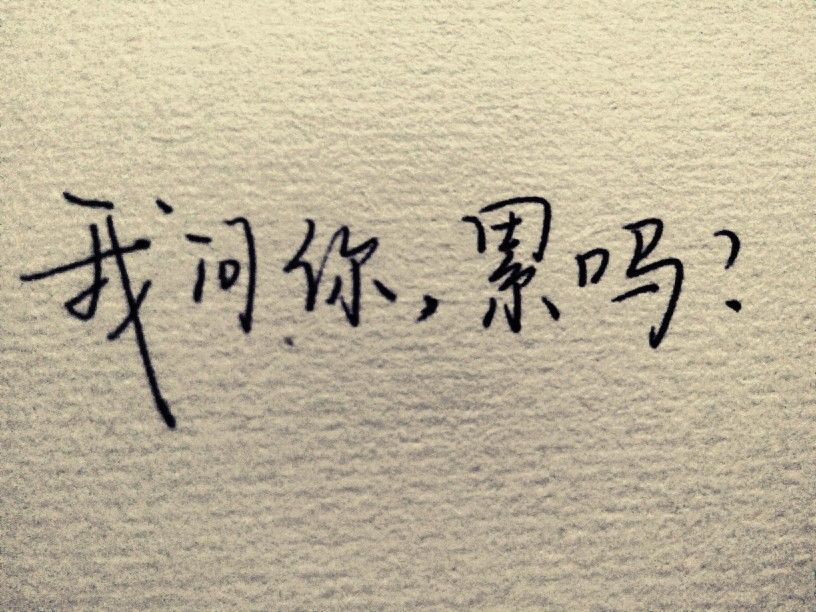 我问你，累吗？